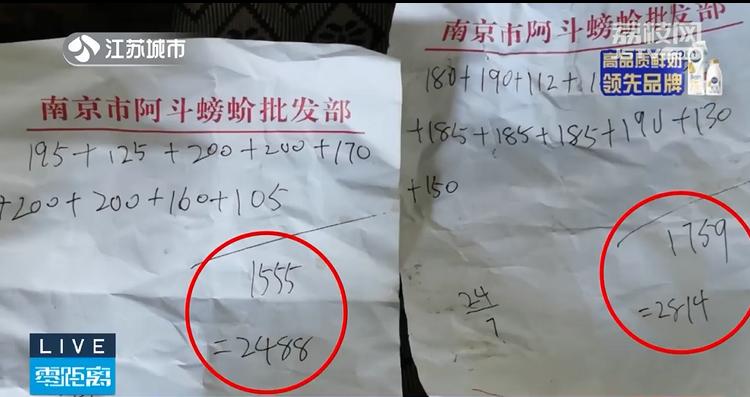 江苏城市
南京市阿斗螃蚧批发部
195+125+200+200+170
+200+200+160+105
1555
=2488
南京市阿斗螃蚧批发部
荔枝网
领先品牌
180+190+112+1
+185+185+185+190+130
+150
1759
=2814
24
7
LIVE
零距离